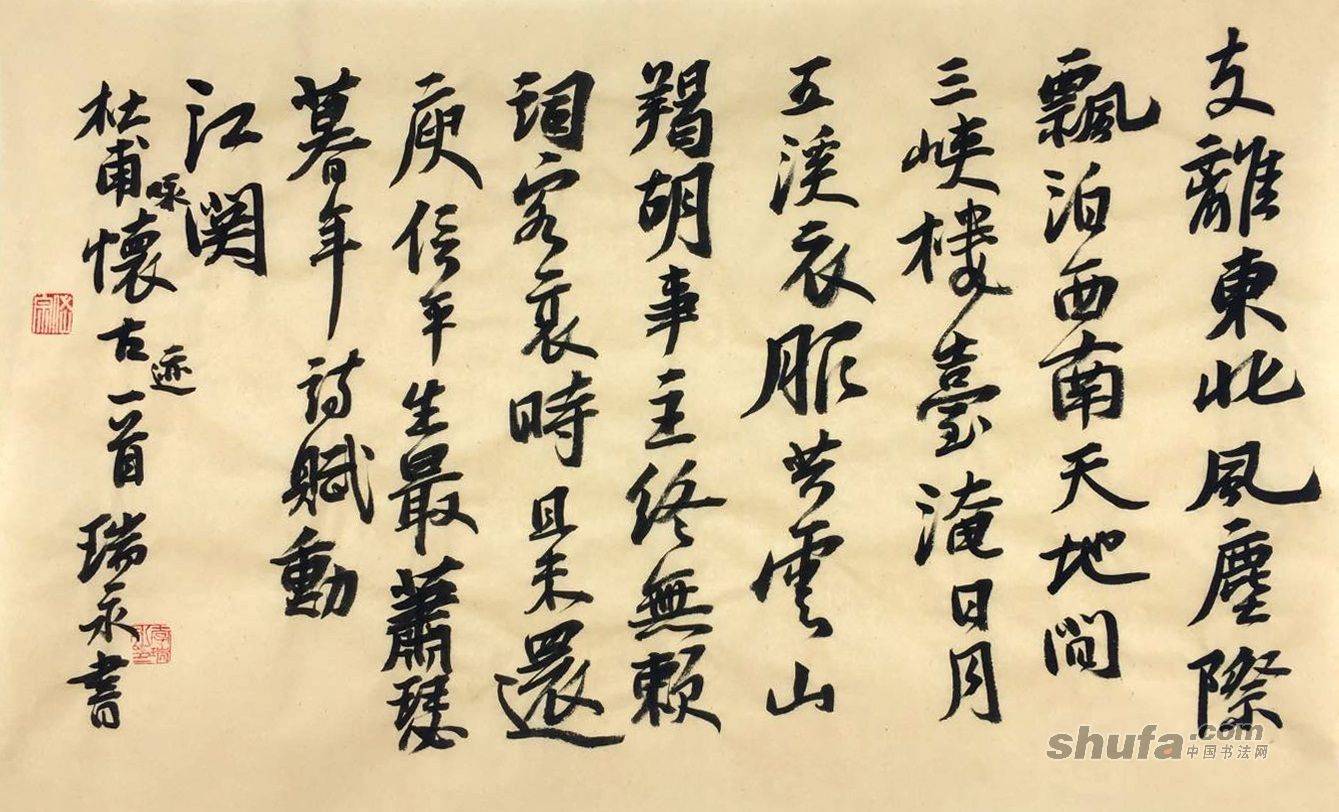 支離東北風塵際
飄泊西南天地間
三峽樓臺淹日月
五溪衣服共雲山
羯胡事主終無賴
詞客哀時且未還
庾信平生最蕭瑟
暮年詩賦動
江関
杜甫詠懷古迹一首 瑞永書
shufa.com
中国书法网